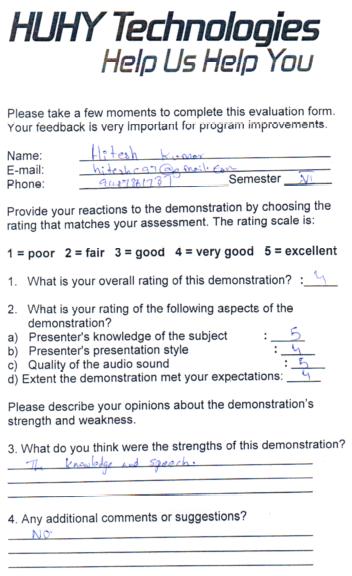 HUHY Technologies
Help Us Help You
Please take a few moments to complete this evaluation form.
Your feedback is very important for program improvements.
Name: Hitesh Kumar
E-mail:
Phone: Semester VI
Provide your reactions to the demonstration by choosing the
rating that matches your assessment. The rating scale is:
1 = poor 2 = fair 3 = good 4 = very good 5 = excellent
1. What is your overall rating of this demonstration? : 4
2. What is your rating of the following aspects of the
demonstration?
a) Presenter's knowledge of the subject : 5
b) Presenter's presentation style : 4
c) Quality of the audio sound : 5
d) Extent the demonstration met your expectations: 4
Please describe your opinions about the demonstration's
strength and weakness.
3. What do you think were the strengths of this demonstration?
The knowledge and speech.
4. Any additional comments or suggestions?
NO